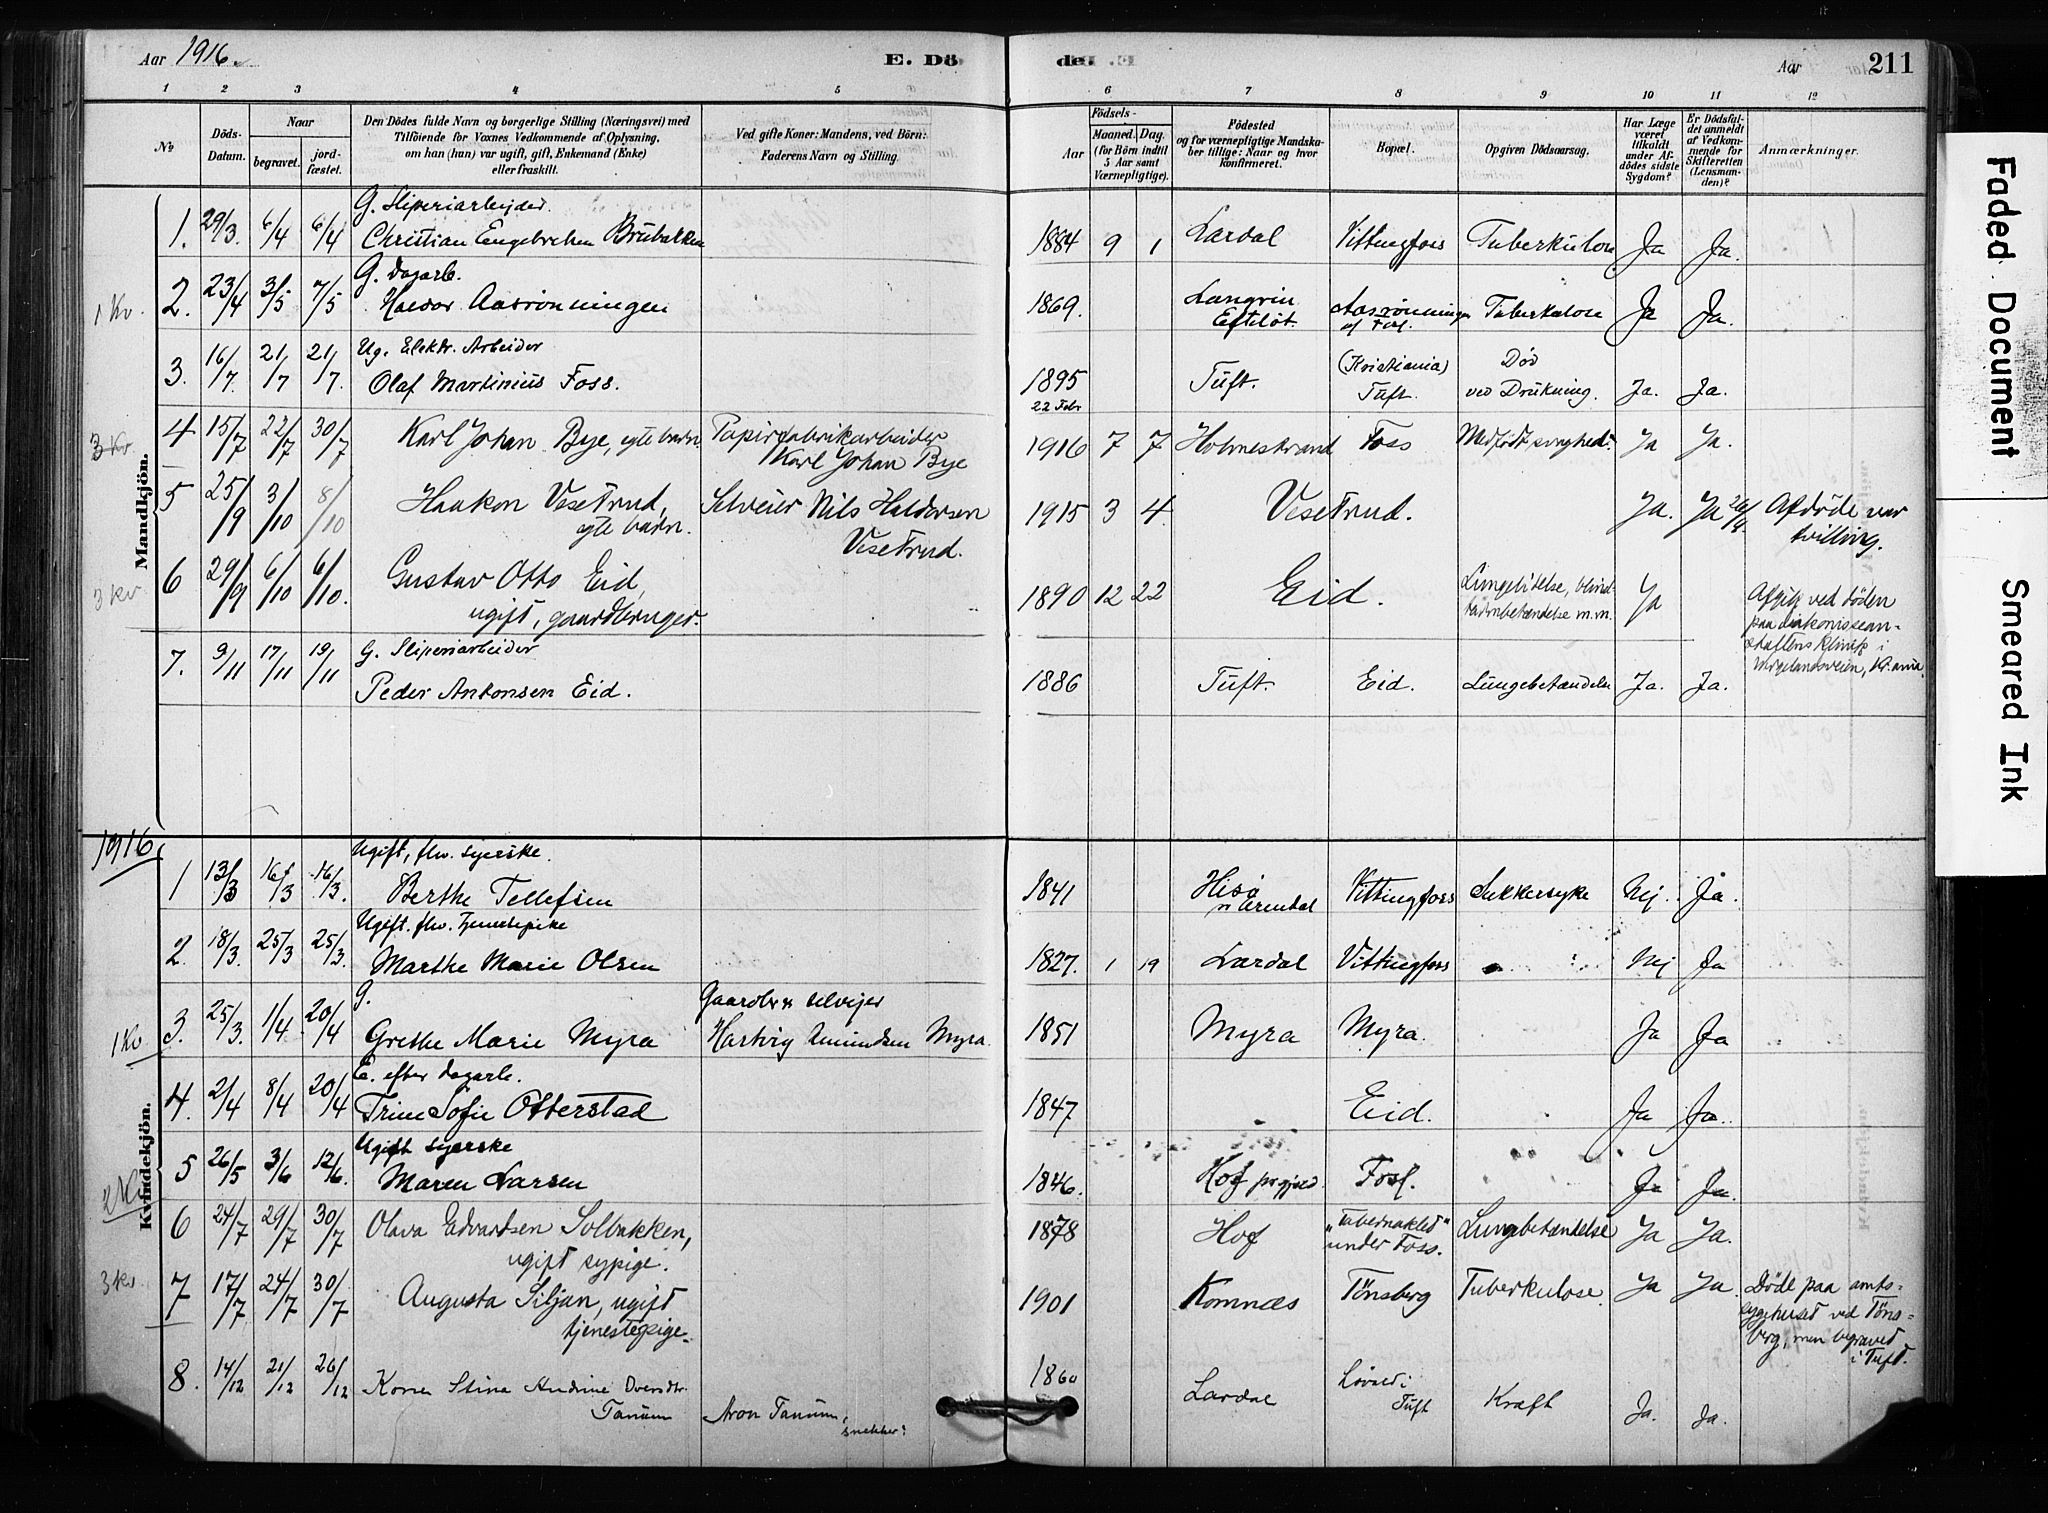 Aar 1916.
E. Dö
de
Aar
211
1 2 3 4 5 6 7 8 9 10 11 12
No
Döds-
Datum.
Naar
begravet.
jord-
fæstet.
Den Dödes fulde Navn og borgerlige Stilling (Næringsvei) med
Tilföiende for Voxnes Vedkommende af Oplysning,
om han (hun) var ugift, gift, Enkemand (Enke)
eller fraskilt.
Ved gifte Koner: Mandens, ved Börn:
Faderens Navn og Stilling.
Födsels-
Aar
Maaned. Dag.
(for Börn indtil
5 Aar samt
Værnepligtige).
Födested
og for værnepligtige Mandska-
ber tillige: Naar og hvor
konfirmeret.
Bopæl.
Opgiven Dödsaarsag.
Har Læge
været
tilkaldt
under Af-
dödes sidste
Sygdom?
Er Dödsfal-
det anmeldt
af Vedkom-
mende for
Skifteretten
(Lensman-
den)?
Anmærkninger.
Mandkjön.
G. Sliperiarbeider.
1. 29/3. 6/4 6/4 Christian Engebretsen Brubakken 1884 9 1 Lardal Vittingfoss Tuberkulose Ja Ja.
G. Dagarb.
1 kv. 2. 23/4 3/5 7/5 Halvor Aasrønningen 1869. Langrin
Efteløt. Aasrønningen
af Foss. Tuberkulose Ja Ja.
Ug. Elektr. Arbeider
3. 16/7. 21/7 21/7. Olaf Martinius Foss. 1895
22 Febr Tuft. (Kristiania)
Tuft. Død
ved Drukning. Ja. Ja.
3 kv 4 15/7 22/7 30/7 Karl Johan Bye, egte barn. Papirfabrikarbeider
Karl Johan Bye 1916 7 7 Holmestrand Foss Medfødt svaghed. Ja Ja.
5 25/9 3/10 8/10 Haakon Vesetrud,
egte barn. Selveier Nils Haldorsen
Vesetrud. 1915 3 4. Vesetrud. Ja. Ja 26/9. Afdöde var
tvilling.
3 kv. 6 29/9 6/10 6/10. Gustav Otto Eid,
ugift, gaardbruger. 1890 12 22 Eid. Lungelidelse, blind-
tarmbetændelse m.m. Ja Afgik ved döden
paa diakonissean-
staltens klinik i
Wergelandsveien, Kr.ania.
G. Sliperiarbeider
7. 9/11 17/11 19/11 Peder Antonsen Eid. 1886 Tuft. Eid. Lungebetændelse Ja. Ja.
1916
Kvindekjön.
Ugift, flv. syerske.
1 13/3 16/3 16/3. Berthe Tellefsen 1841 Hisö
v/ Arendal Vittingfoss Sukkersyke Nej. Ja.
Ugift. flv. tjenestepike
2. 18/3. 25/3 25/3. Marthe Marie Olsen 1827. 1 19 Lardal Vittingfoss Nej Ja
G. Gaardbr & selvejer
1 Kv 3. 25/3. 1/4. 20/4 Grethe Marie Myra Hartvig Amundsen Myra. 1851 Myra Myra. Ja Ja
E. efter dagarb.
4. 2/4 8/4 20/4 Trine Sofie Otterstad 1847 Eid. Ja Ja.
Ugift syerske
2 Kv 5 26/5 3/6 12/6. Maren Larsen 1846. Hof prgjeld. Foss. Ja Ja.
6 24/7 29/7 30/7 Olava Edvardsen Solbakken,
ugift sypige. 1878 Hof "Tabernaklet"
under Foss. Lungebetændelse Ja Ja.
3 kv. 7 17/7 24/7 30/7 Augusta Siljan, ugift
tjenestepige. 1901 Komnæs Tönsberg Tuberkulose. Ja Ja. Döde paa amts-
sygehuset ved Töns-
berg, men begravet
i Tuft.
8. 14/12 21/12 26/12 Kone Stine Andrine Oversdtr.
Tanum Aron Tanum,
snekker. 1860 Lardal Lövald i
Tuft Kræft Ja. Ja.
Faded Document
Smeared Ink